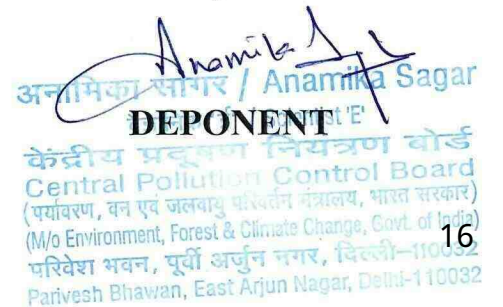 Anamika
अनामिका सागर / Anamika Sagar
'E'
DEPONENT
केंद्रीय प्रदूषण नियंत्रण बोर्ड
Central Pollution Control Board
(पर्यावरण, वन एवं जलवायु परिवर्तन मंत्रालय, भारत सरकार)
(M/o Environment, Forest & Climate Change, Govt. of India)
16
परिवेश भवन, पूर्वी अर्जुन नगर, दिल्ली-110032
Parivesh Bhawan, East Arjun Nagar, Delhi-110032